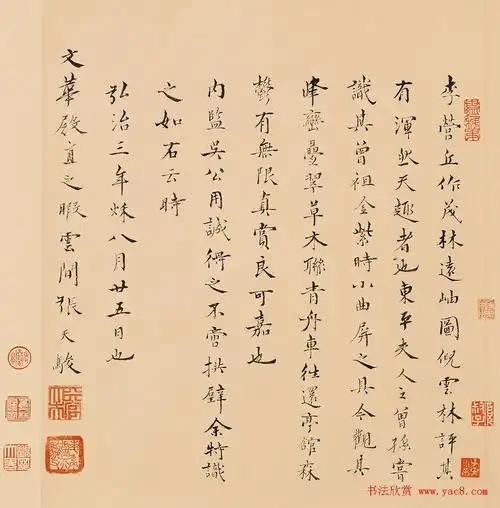 李營丘作茂林遠岫圖倪雲林評其
有渾然天趣者也東平夫人之曾孫嘗
識其曾祖金紫時小曲屏之具今觀其
峰巒疊翠草木聯青舟車往還亭館森
欝有無限真賞良可嘉也
内監吳公用誠得之不啻拱璧余特識
之如右云時
弘治三年烁八月廿五日也
文華殿直之暇雲間張天駿
书法欣赏 www.yac8.com